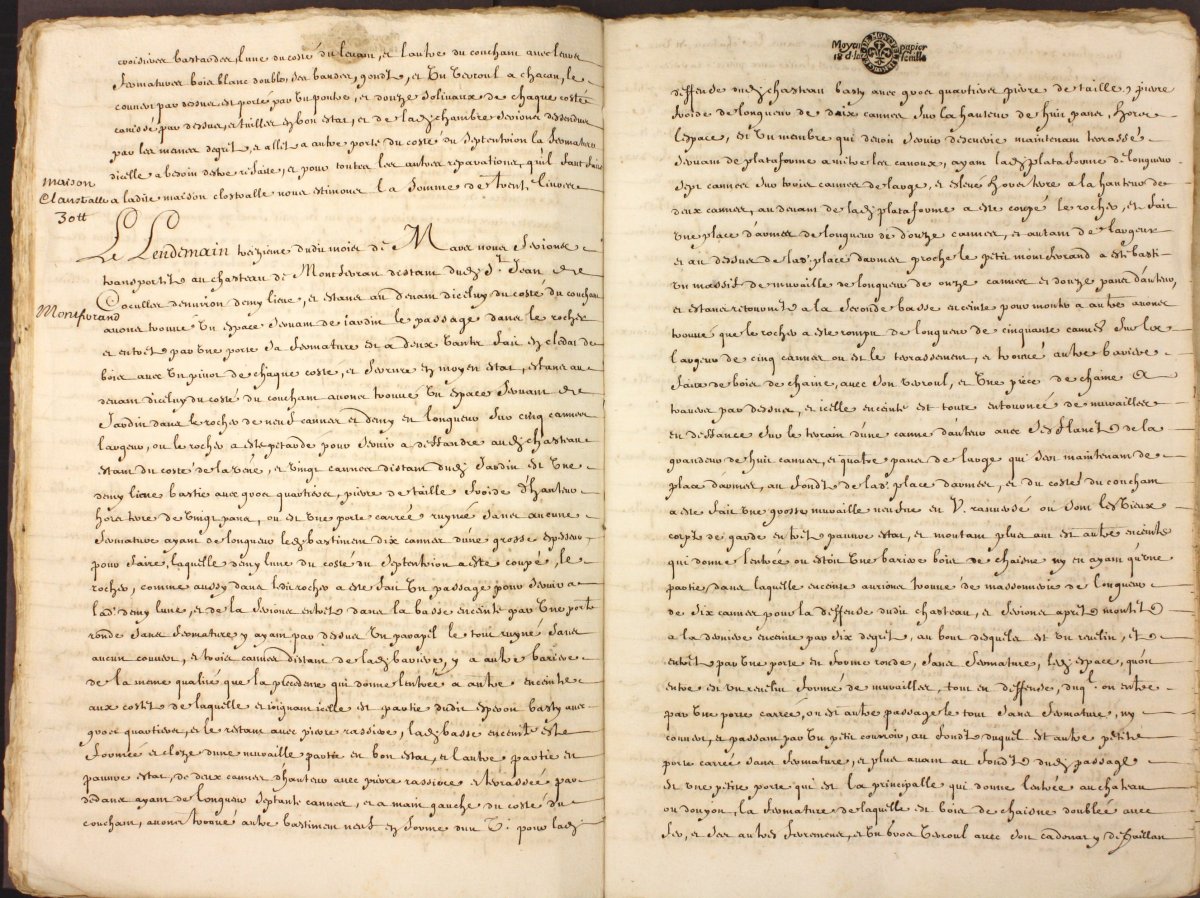 croisiere bastardes, l'une du costé du levan, et l'autre du couchan avec leurs
fermatures bois blanc doubles, ses bandes, gondz, et un verroul a chacun, le
couvert par dessus est porté par un poutre, et douze solivaux de chaque costé
canissé par dessus, et tuilles en bon estat, et de lad. chambre serions dessendus
par les mesmes degrets, et allet a autre porte du costé du septentrion la fermature
d'icelle a besoin d'estre refaite, et pour toutes les autres reparations, qu'il faut faire
maison
Claustralle
30tt
a ladite maison clostralle nous estimons la somme de trente livres
Le Lendemain treizieme dudit mois de Mars nous serions
transportés au chasteau de Montferrand distant dud. St. Jean de
Cocullet d'environ demy lieue, et estans au devant d'iceluy du costé du couchan
Montferrand
avons trouvé un espace servant de jardin le passage dans le rocher
et entrés par une porte sa fermature est a deux vantz fait en cledat de
bois avec un pivot de chaque coste, et serrure en moyen estat, estans au
devant d'iceluy du costé du couchant avons trouvé un espace servant de
Jardin dans le rocher de neuf cannes et demy en longueur sur cinq cannes
largeur, ou le rocher a esté petardé pour servir a deffandre aud. chasteau
estant du costé de la voie, et vingt cannes distant dud. Jardin est une
demy lune bastie avec gros quartiers, pierre de taille froide d'hauteur
hors terre de vingt pans, ou est une porte carrée ruynée sans aucune
fermature ayant de longueur led. bastiment dix cannes d'une grosse espesseur
pour faire, laquelle demy lune du costé du septentrion a esté coupé, le
rocher, comme aussy dans led. rocher a esté fait un passage pour servir a
lad. demy lune, et de la serions entrés dans la basse enceinte par une porte
ronde sans fermature y ayant par dessus un parapel le tout ruyné sans
aucun couvert, et trois cannes distant de lad. bariere, y a autre bariere
de la meme qualité que la precedente qui donne l'entrée a autre enceinte
aux costés de laquelle et joignant icelle est partie dudit esperon basty avec
gros quartiers, et le restant avec pierre rassiere, lad. basse enceinte este
fermée et close d'une muraille partie en bon estat, et l'autre partie en
pauvre estat, de deux cannes d'hauteur avec pierre rassiere et terrassée par
dedans ayant de longueur septante cannes, et a main gauche du costé du
couchant, avons trouvé autre bastiment neuf en forme d'un V. pour lad.
Moyen papier
18 d. la feuille
deffense dud. chasteau basty avec gros quartiers pierre de taille, pierre
froide de longueur de dix cannes sur la hauteur de huit pans, hors
l'espace, est un membre qui devoit servir d'escurie maintenant terrassé
servant de plataforme a mettre les canons, ayant lad. plataforme de longueur
sept cannes sur trois cannes de large, et eslevé hors terre a la hauteur de
deux cannes, au devant de lad. plataforme a esté coupé le rocher, et fait
une place d'armes de longueur de douze cannes, et autant de largeur
et au dessus de lad. place d'armes proche le petit montferrand a esté basti
un massif de muraille de longueur de onze cannes et douze pans d'auteur,
et estans retournés a la seconde basse enceinte pour monter a autre avons
trouvé que le rocher a esté rompu de longueur de cinquante cannes sur la
largeur de cinq cannes ou est le terrassement, et trouvé autre bariere
faite de bois de chaine, avec son verroul, et une piece de chaine a
travers par dessus, et icelle enceinte est toute entournée de murailles
en deffance sur le terrain d'une canne d'auteur avec ses flancs de la
grandeur de huit cannes, et quatre pans de large qui sert maintenant de
place d'armes, au fondz de lad. place d'armes, et du costé du couchant
a esté fait une grosse muraille neufve en V. ranversé ou sont les vieux
corps de garde en tres pauvre estat, et montant plus aut est autre enceinte
qui donne l'entrée ou estoit une bariere bois de chaisne ny en ayant qu'une
partie, dans laquelle enceinte aurions trouvé de massonnerie de longueur
de six cannes pour la deffense dudit chasteau, et serions apres montés
a la derniere enceinte par six degrets, au bout desquels est un revelin, et
entrés par une porte en forme ronde, sans fermature, led. espace, qu'on
entre est un revelin formé de murailles, tout en deffense, duql. on entre
par une porte carrée, ou est autre passage le tout sans fermature, ny
couvert, et passant par un petit courroir, au fondz duquel est autre petite
porte carrée sans fermature, et plus avant au fondz dud. passage
est une petite porte qui est la principalle qui donne l'entrée au chateau
ou donjon, la fermature de laquelle est bois de chaisne doublée avec
fer, et ses autres ferremens, et un gros verroul avec son cadenat y defaillant